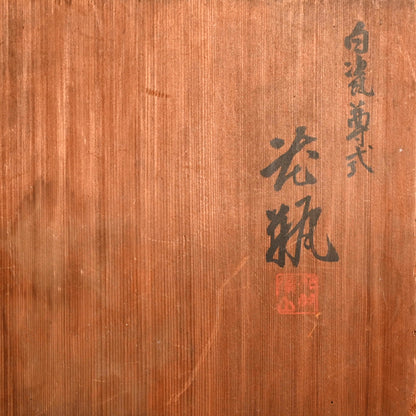 白瓷尊式
花瓶